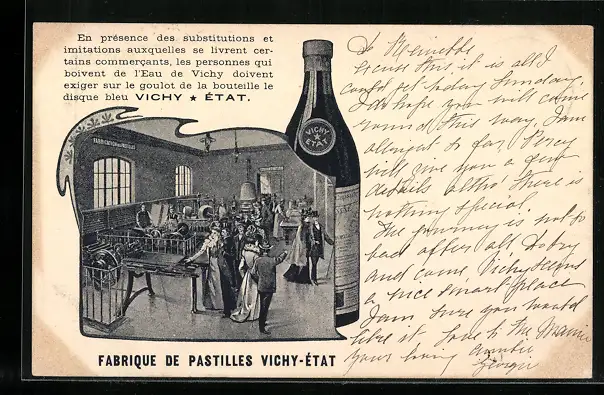 En présence des substitutions et
imitations auxquelles se livrent cer-
tains commerçants, les personnes qui
boivent de l'Eau de Vichy doivent
exiger sur le goulot de la bouteille le
disque bleu VICHY ★ ÉTAT.
VICHY
ÉTAT
ÉTAT
FABRIQUE DE PASTILLES VICHY-ÉTAT
excuse this it is all I
could get today Sunday.
I do hope you will come
round this way, I am
so far, Percy
will give you a few
details altho' there is
nothing special.
The journey is not so
bad after all Do try
and come, Vichy seems
a nice smart place
I am sure you would
like it. Love to the
your loving
Georgie